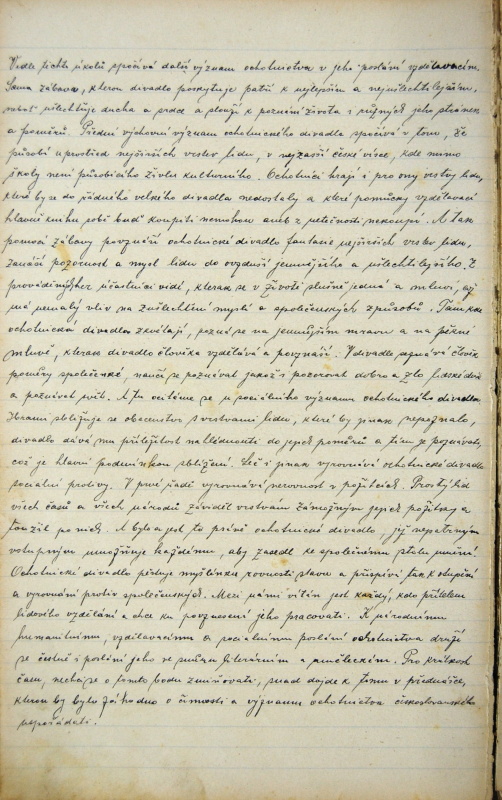 Vedle těchto úkolů spočívá další význam ochotnictva v jeho poslání vzdělavacím.
Sama zábava, kterou divadlo poskytuje patří k nejlepším a nejušlechtilejším,
neboť ušlechťuje ducha a srdce a slouží k poznání života s různých jeho stránek
a poměrů. Přední výchovný význam ochotnického divadla spočívá v tom, že
působí uprostřed nejširších vrstev lidu, v nejzazší české vísce, kde mimo
školy není působícího živlu kulturního. Ochotníci hrají i pro ony vrstvy lidu,
které by se do řádného velkého divadla nedostaly a které pomůcky vzdělávací
hlavně knihu sobě buď koupiti nemohou aneb z netečnosti nekoupí. A tak
pomocí zábavy povznáší ochotnické divadlo fantasii nejširších vrstev lidu,
zanáší pozornost a mysl lidu do ovzduší jemnějšího a ušlechtilejšího. Z
prováděných her účastníci vidí, kterak se v životě slušně jedná a mluví, což
má nemalý vliv na zušlechtění mysli a společenských způsobů. Tam kde
ochotnická divadla zkoušejí, pozná se na jemnějším mravu a na pěkné
mluvě, kterak divadlo člověka vzdělává a povznáší. V divadle poznává člověk
poměry společenské, naučí se poznávat jakož i pozorovat dobro a zlo lidské duše
a poznávat svět. A tu ocitáme se u sociálního významu ochotnického divadla.
Hrami sbližuje se obecenstvo s vrstvami lidu, které by jinak nepoznalo,
divadlo dává mu příležitost nahlédnouti do jejich poměrů a tím je poznávati,
což je hlavní podmínkou sblížení. Leč i jinak vyrovnává ochotnické divadlo
sociální protivy. V prvé řadě vyrovnává nerovnost v požitcích. Prostý lid
všech časů a všech národů záviděl vrstvám zámožným jejich požitky a
toužil po nich. A bylo a jest to právě ochotnické divadlo, jež nepatrným
vstupným umožňuje každému, aby zasedl ke společnému stolu umění.
Ochotnické divadlo pěstuje myšlenku rovnosti stavu a přispívá tak k otupení
a vyrovnání protiv společenských. Mezi námi vítán jest každý, kdo přítelem
lidového vzdělání a chce ku povznesení jeho pracovati. K národnímu
humanitnímu, vzdělavacímu a sociálnímu poslání ochotnictva druží
se čestně i poslání jeho ve směru literárním a uměleckém. Pro krátkost
času, nechci se o tomto bodu zmiňovati, snad dojde k tomu v přednášce,
kterou by bylo záhodno o činnosti a významu ochotnictva československého
uspořádati.